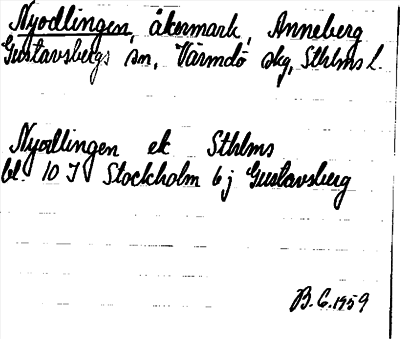 Nyodlingen, åkermark, Anneberg
Gustavsbergs sn, Värmdö skg, Sthlms l.
Nyodlingen ek Sthlms
bl. 10 I Stockholm 6 j Gustavsberg
B. G. 1959